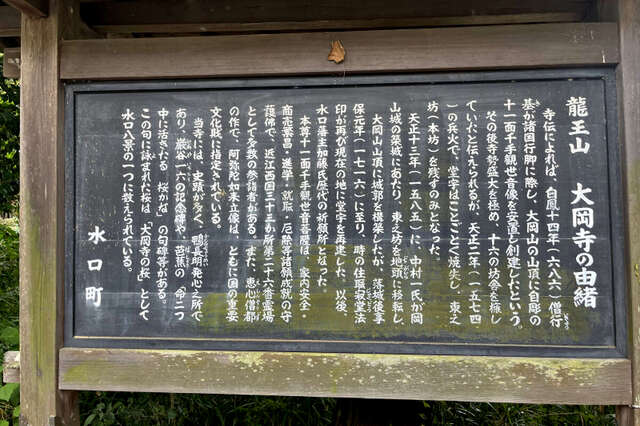 龍王山　大岡寺の由緒
寺伝によれば、白鳳十四年（六八六）僧行
基が諸国行脚に際し、大岡山の山頂に自彫の
十一面千手観世音像を安置し創建したという。
その後寺勢盛大を極め、十六の坊舎を擁し
ていたと伝えられるが、天正二年（一五七四
）の兵火で、堂宇はことごとく焼失し、東之
坊（本坊）を残すのみとなった。
天正十三年（一五八五）に、中村一氏が岡
山城の築城にあたり、東之坊を地頭に移転し、
大岡山山頂に城郭を構築したが、落城後享
保元年（一七一六）に至り、時の住職寂堂法
印が再び現在の地に堂宇を再建した。以後、
水口藩主加藤氏歴代の祈願所となった
本尊十一面千手観世音菩薩は、家内安全・
商売繁昌・進学・就職・厄除等諸願成就の守
護佛で、近江西国三十三か所第二十六番霊場
として多数の参詣者がある。また、恵心僧都
の作で、阿弥陀如来立像は、ともに国の重要
文化財に指定されている。
当寺には、史蹟が多く、鴨長明発心之所で
あり、巌谷一六の記念碑や、芭蕉の「命二つ
中に活きたる　桜かな」の句碑等がある。
この句に詠まれた桜は「大岡寺の桜」として
水口八景の一つに数えられている。
水口町